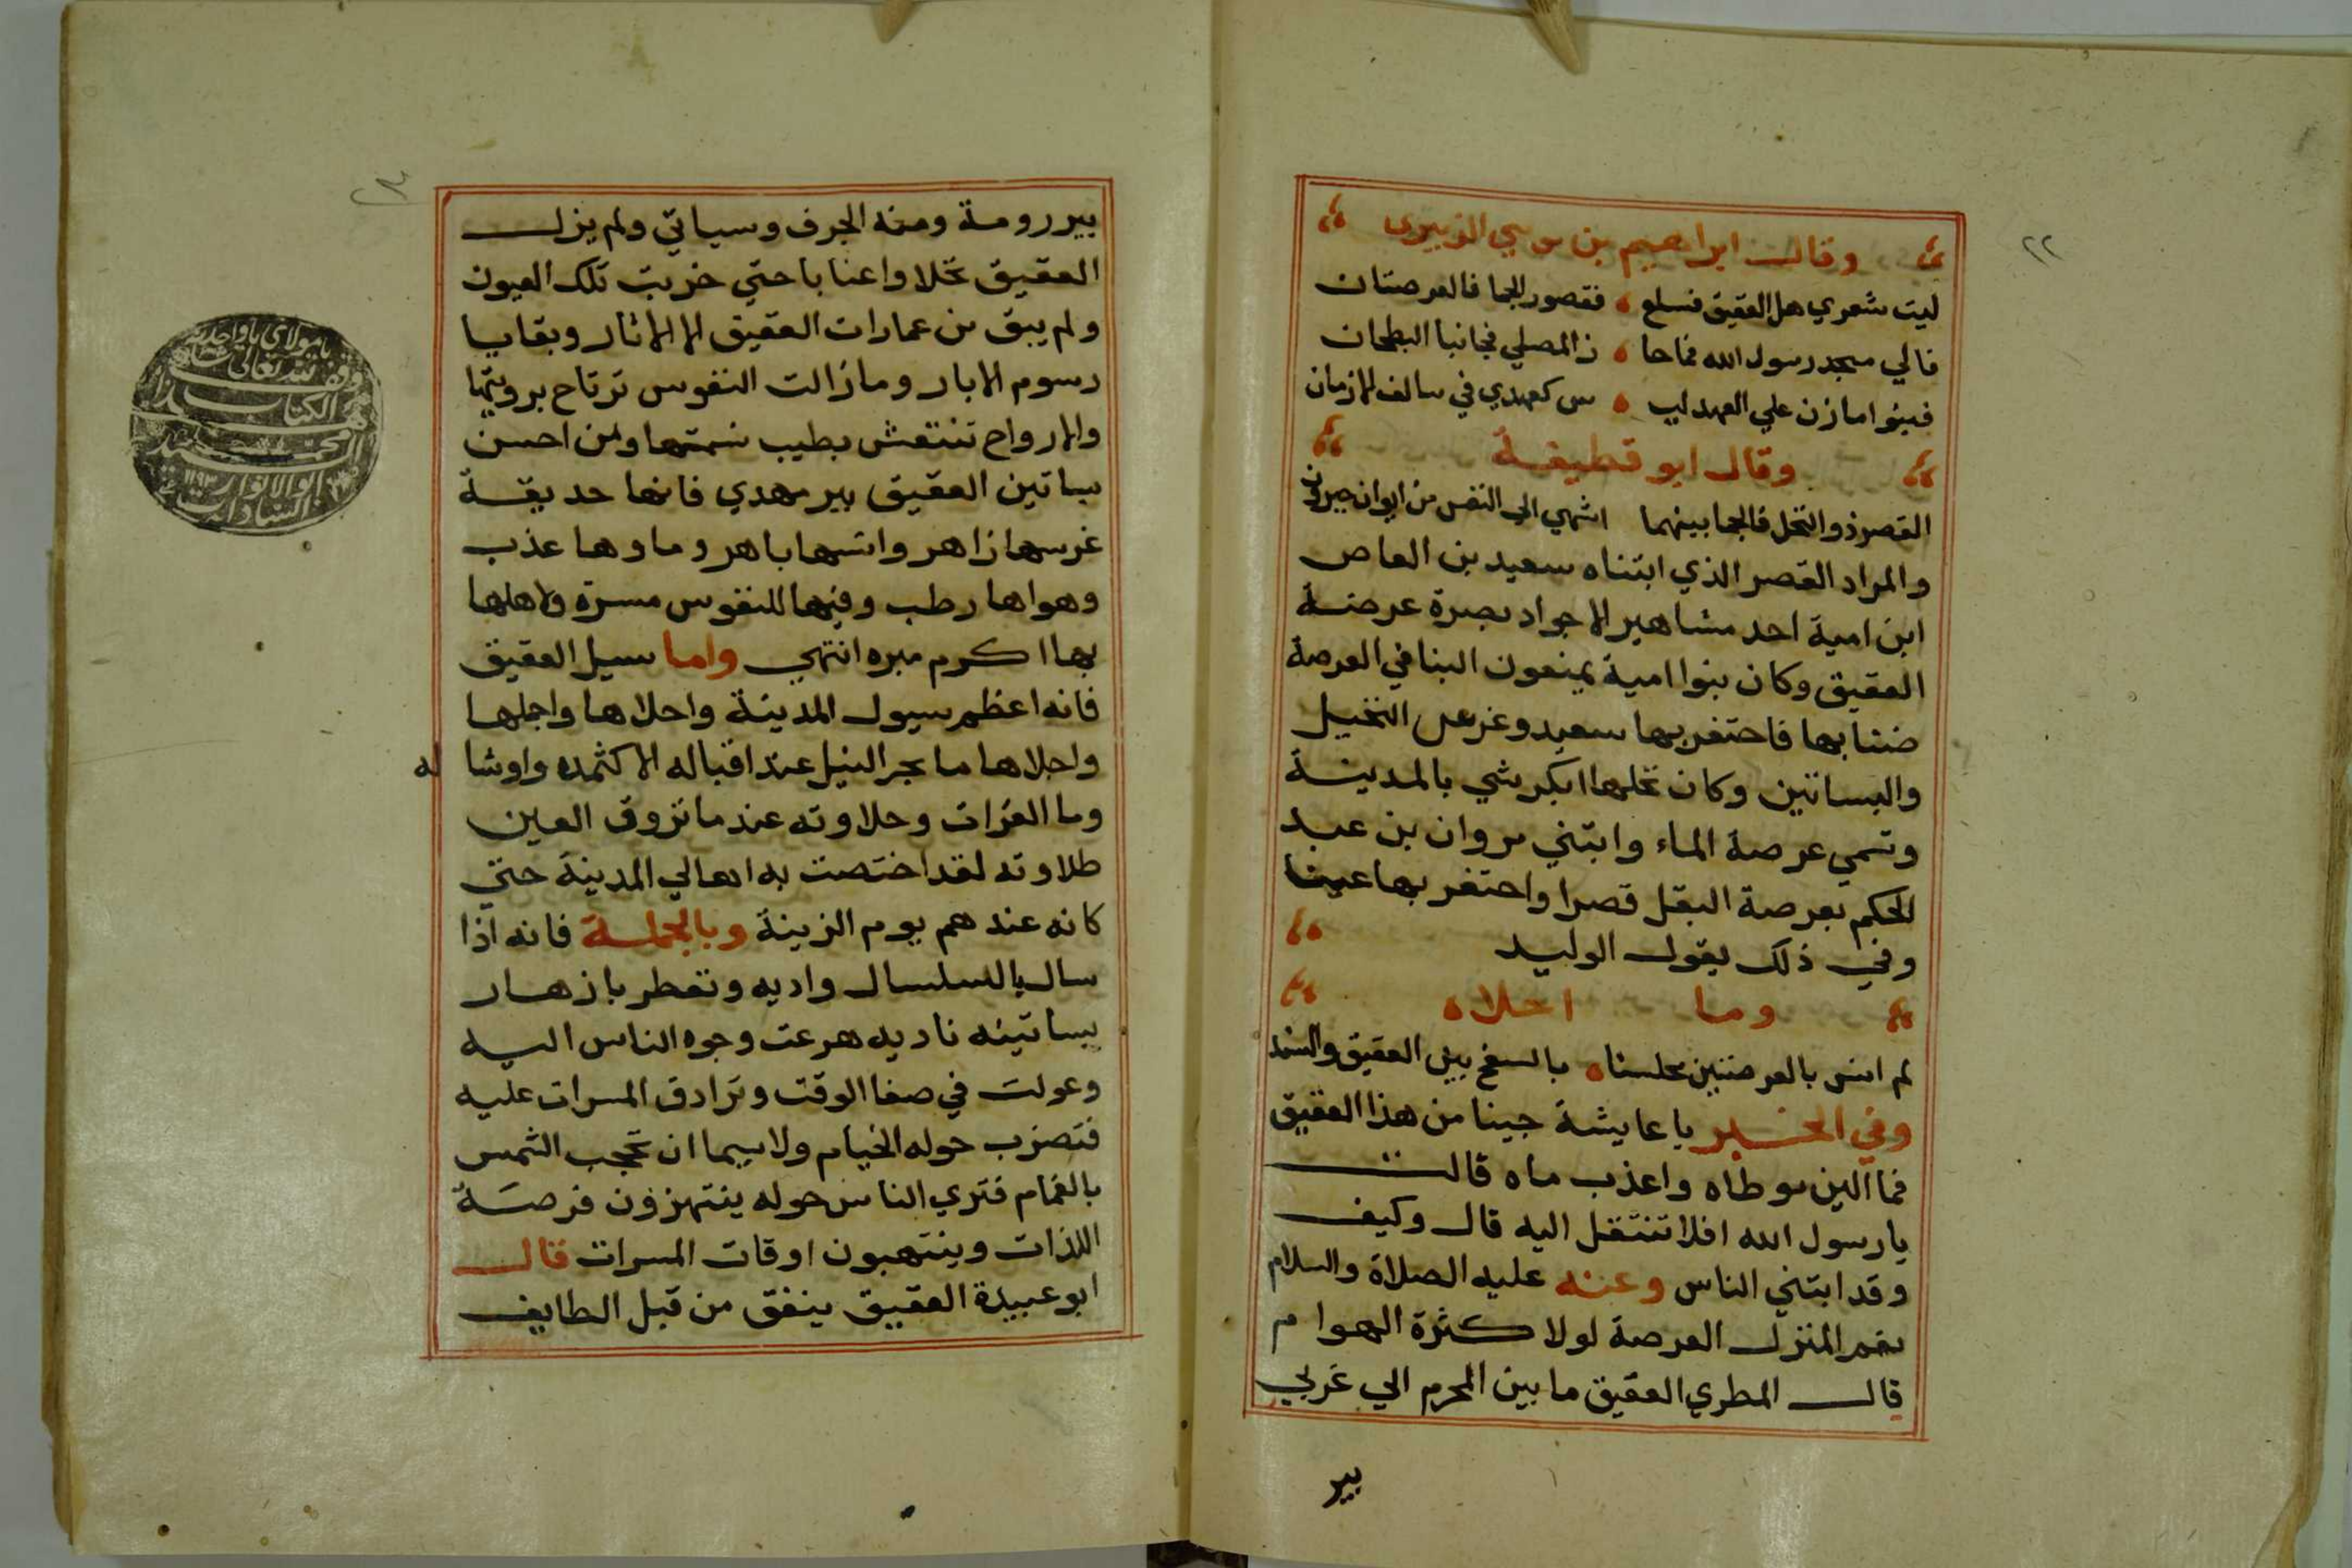 ٢٢
وقال ابراهيم بن موسي الزبيري
ليت شعري هل العقيق فسلع فقصور الجما فالعرصتان
فالي مسجد رسول الله فما حا ز المصلي فجانبا البطحان
فبنوا مازن علي العهد ليسوا س كعهدي في سالف الازمان
وقال ابو قطيفة
القصر ذو النخل فالجما بينهما اشهي الي النفس من ابوان جيرون
والمراد القصر الذي ابتناه سعيد بن العاص
ابن امية احد مشاهير الاجواد بصرة عرصة
العقيق وكان بنوا امية يمنعون البنا في العرصة
ضنا بها فاحتفر بها سعيد وغرس النخيل
والبساتين وكان نخلها ابكر شي بالمدينة
وتسمي عرصة الماء وابتني مروان بن عبد
الحكم بعرصة البقل قصرا واحتفر بها عينا
وفي ذلك يقول الوليد
وما احلاه
لم انس بالعرصتين مجلسنا بالسفح بين العقيق والسند
وفي الخبر يا عايشة جينا من هذا العقيق
فما الين موطاه واعذب ماه قالت
يا رسول الله افلا تنتقل اليه قال وكيف
وقد ابتني الناس وعنه عليه الصلاة والسلام
نعم المنزل العرصة لولا كثرة الهوام
قال المطري العقيق ما بين المحرم الي غربي
بير
٢٣
بير رومة ومنه الجرف وسياتي ولم يزل
العقيق نخلا واعنابا حتي خربت تلك العيون
ولم يبق من عمارات العقيق الا الاثار وبقايا
رسوم الابار وما زالت النفوس ترتاح برويتها
والارواح تنتعش بطيب نسمتها ومن احسن
بساتين العقيق بير مهدي فانها حديقة
غرسها زاهر وانسها باهر وماوها عذب
وهواها رطب وفيها للنفوس مسرة ولاهلها
بها اكرم مبره انتهي واما سيل العقيق
فانه اعظم سيول المدينة واحلاها واجملها
واجلاها ما بحر النيل عند اقباله الا كثمده واوشا له
وما الفرات وحلاوته عند ما تروق العين
طلاوته لقد اختصت به اهالي المدينة حتي
كانه عندهم يوم الزينة وبالجملة فانه اذا
سال بالسلسال واديه وتعطر بازهار
بساتينه ناديه هرعت وجوه الناس اليه
وعولت في صفا الوقت وترادف المسرات عليه
فتضرب حوله الخيام ولا سيما ان تحجب الشمس
بالغمام فتري الناس حوله ينتهزون فرصة
اللذات وينتهبون اوقات المسرات قال
ابو عبيدة العقيق ينفق من قبل الطايف
يا مولاي يا واحد
وقف لله تعالى
هذا الكتاب
محمد
السند